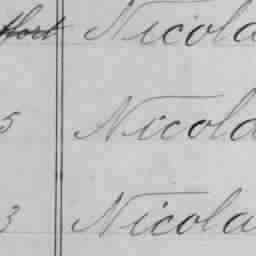 fort Nicola
5 Nicola
3 Nicola